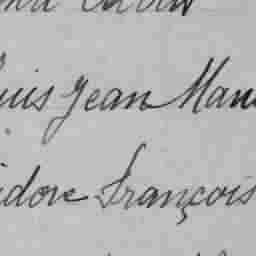 uis Jean Mau
idore François